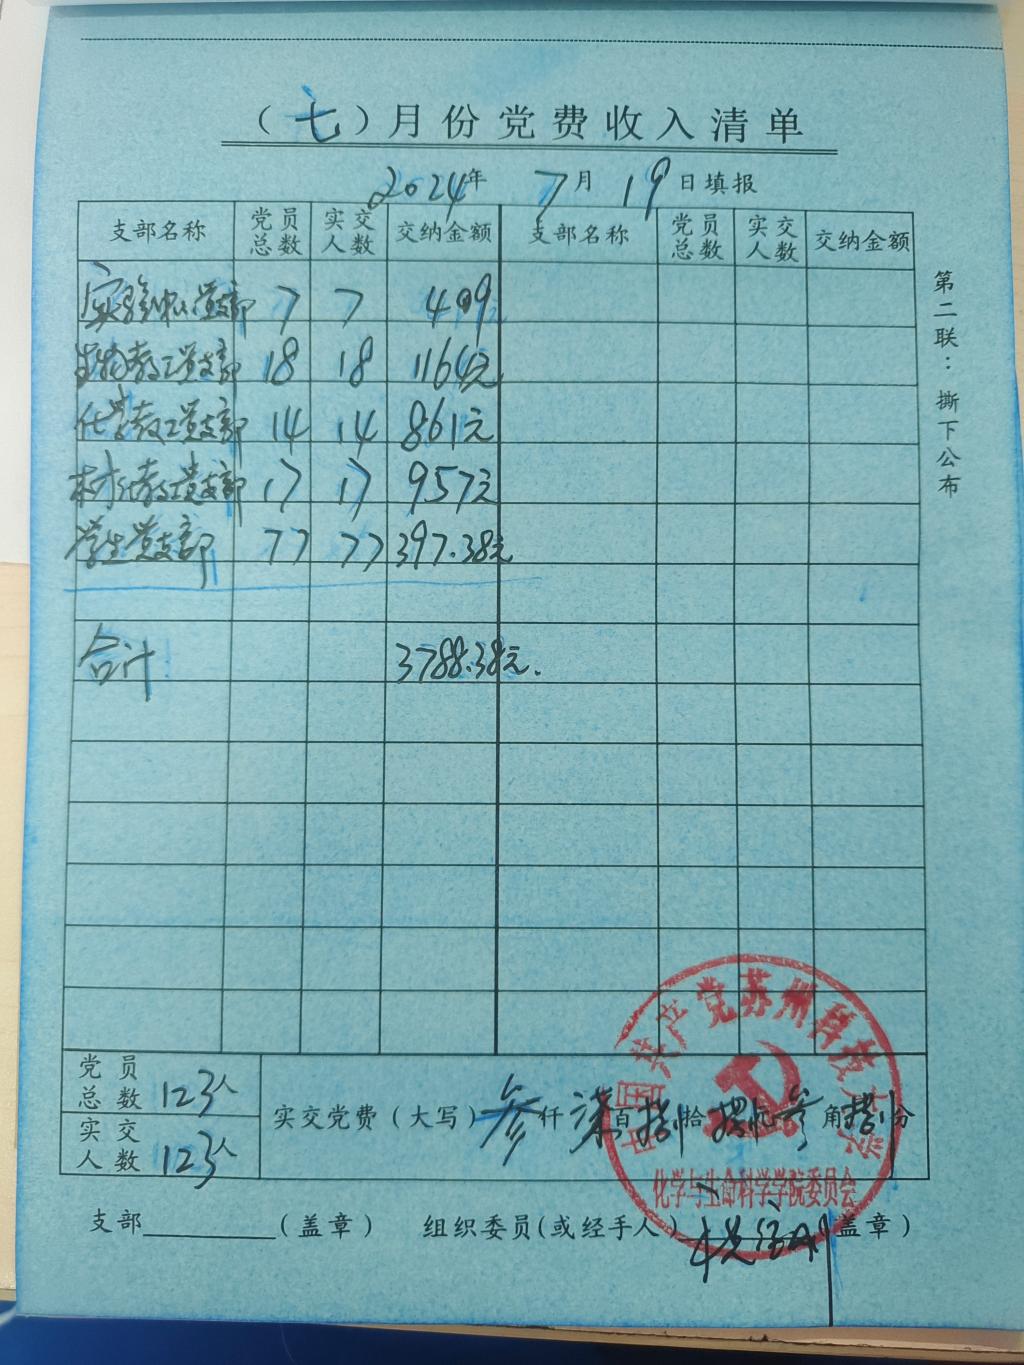 （七）月份党费收入清单
2024年 7月 19日填报
支部名称 党员总数 实交人数 交纳金额 支部名称 党员总数 实交人数 交纳金额
实验中心党支部 7 7 409
生物教工党支部 18 18 1164元
化学教工党支部 14 14 861元
材化教工党支部 17 17 957元
学生党支部 77 77 397.38元
合计 3788.38元.
第二联：撕下公布
党员总数 123人
实交人数 123人
实交党费（大写）叁仟柒百捌拾捌元叁角捌分
中国共产党苏州科技大学
化学与生命科学学院委员会
支部（盖章） 组织委员(或经手人）（盖章）